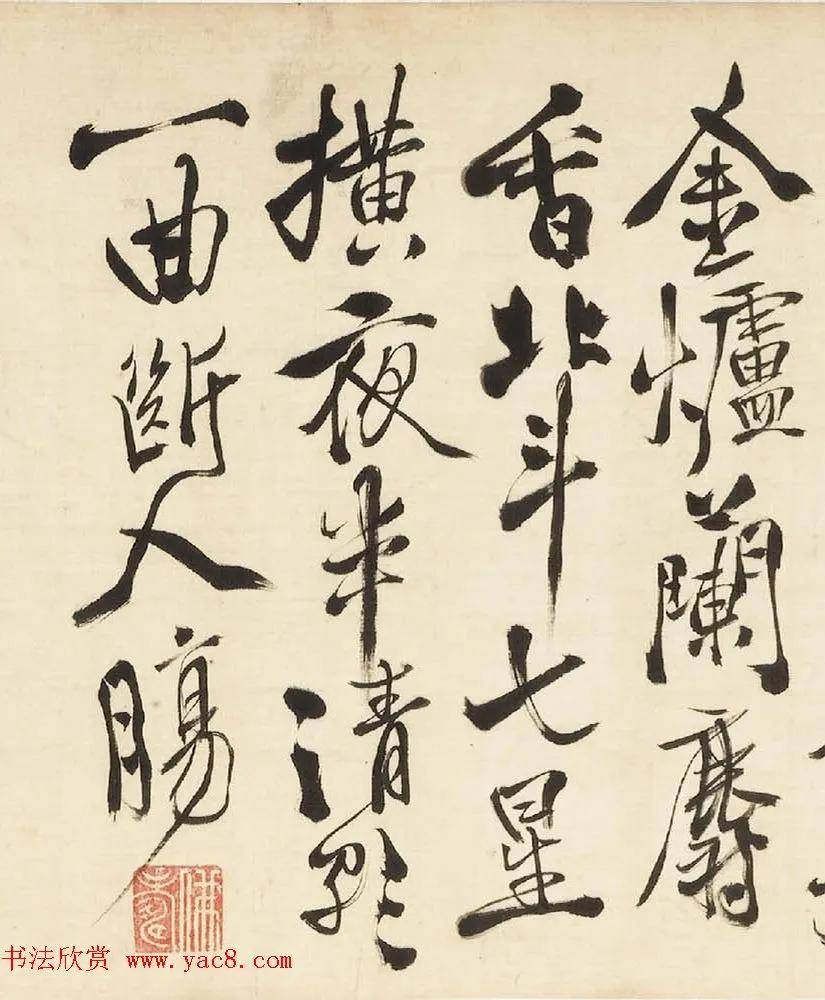 金爐蘭麝
香北斗七星
横夜半清歌
一曲斷人腸
书法欣赏 www.yac8.com